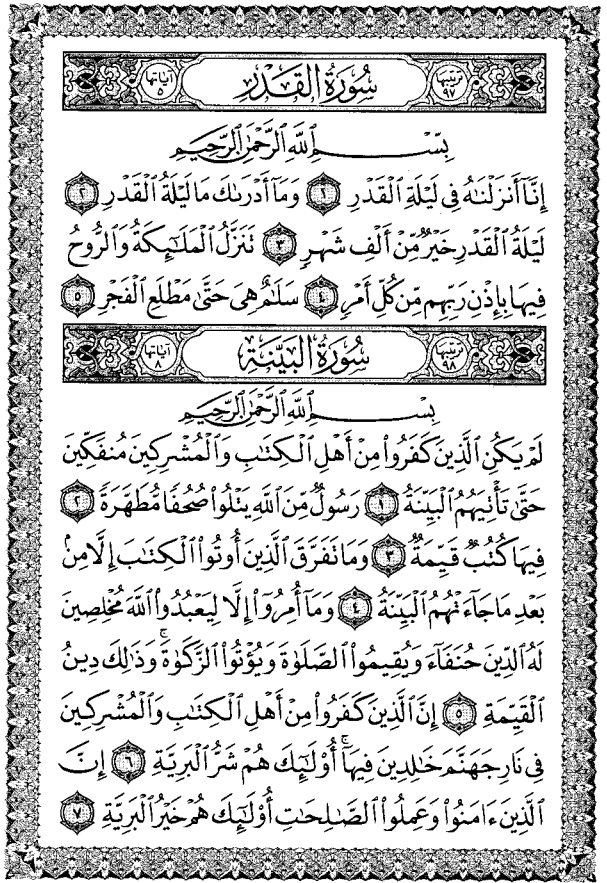 ترتيبها ٩٧ سُورَةُ الْقَدْرِ آياتها ٥
بِسْمِ اللَّهِ الرَّحْمَٰنِ الرَّحِيمِ
إِنَّآ أَنزَلْنَٰهُ فِى لَيْلَةِ ٱلْقَدْرِ ١ وَمَآ أَدْرَىٰكَ مَا لَيْلَةُ ٱلْقَدْرِ ٢
لَيْلَةُ ٱلْقَدْرِ خَيْرٌ مِّنْ أَلْفِ شَهْرٍ ٣ تَنَزَّلُ ٱلْمَلَٰٓئِكَةُ وَٱلرُّوحُ
فِيهَا بِإِذْنِ رَبِّهِم مِّن كُلِّ أَمْرٍ ٤ سَلَٰمٌ هِىَ حَتَّىٰ مَطْلَعِ ٱلْفَجْرِ ٥
ترتيبها ٩٨ سُورَةُ الْبَيِّنَةِ آياتها ٨
بِسْمِ اللَّهِ الرَّحْمَٰنِ الرَّحِيمِ
لَمْ يَكُنِ ٱلَّذِينَ كَفَرُوا۟ مِنْ أَهْلِ ٱلْكِتَٰبِ وَٱلْمُشْرِكِينَ مُنفَكِّينَ
حَتَّىٰ تَأْتِيَهُمُ ٱلْبَيِّنَةُ ١ رَسُولٌ مِّنَ ٱللَّهِ يَتْلُوا۟ صُحُفًا مُّطَهَّرَةً ٢
فِيهَا كُتُبٌ قَيِّمَةٌ ٣ وَمَا تَفَرَّقَ ٱلَّذِينَ أُوتُوا۟ ٱلْكِتَٰبَ إِلَّا مِنۢ
بَعْدِ مَا جَآءَتْهُمُ ٱلْبَيِّنَةُ ٤ وَمَآ أُمِرُوٓا۟ إِلَّا لِيَعْبُدُوا۟ ٱللَّهَ مُخْلِصِينَ
لَهُ ٱلدِّينَ حُنَفَآءَ وَيُقِيمُوا۟ ٱلصَّلَوٰةَ وَيُؤْتُوا۟ ٱلزَّكَوٰةَ ۚ وَذَٰلِكَ دِينُ
ٱلْقَيِّمَةِ ٥ إِنَّ ٱلَّذِينَ كَفَرُوا۟ مِنْ أَهْلِ ٱلْكِتَٰبِ وَٱلْمُشْرِكِينَ
فِى نَارِ جَهَنَّمَ خَٰلِدِينَ فِيهَآ ۚ أُو۟لَٰٓئِكَ هُمْ شَرُّ ٱلْبَرِيَّةِ ٦ إِنَّ
ٱلَّذِينَ ءَامَنُوا۟ وَعَمِلُوا۟ ٱلصَّٰلِحَٰتِ أُو۟لَٰٓئِكَ هُمْ خَيْرُ ٱلْبَرِيَّةِ ٧